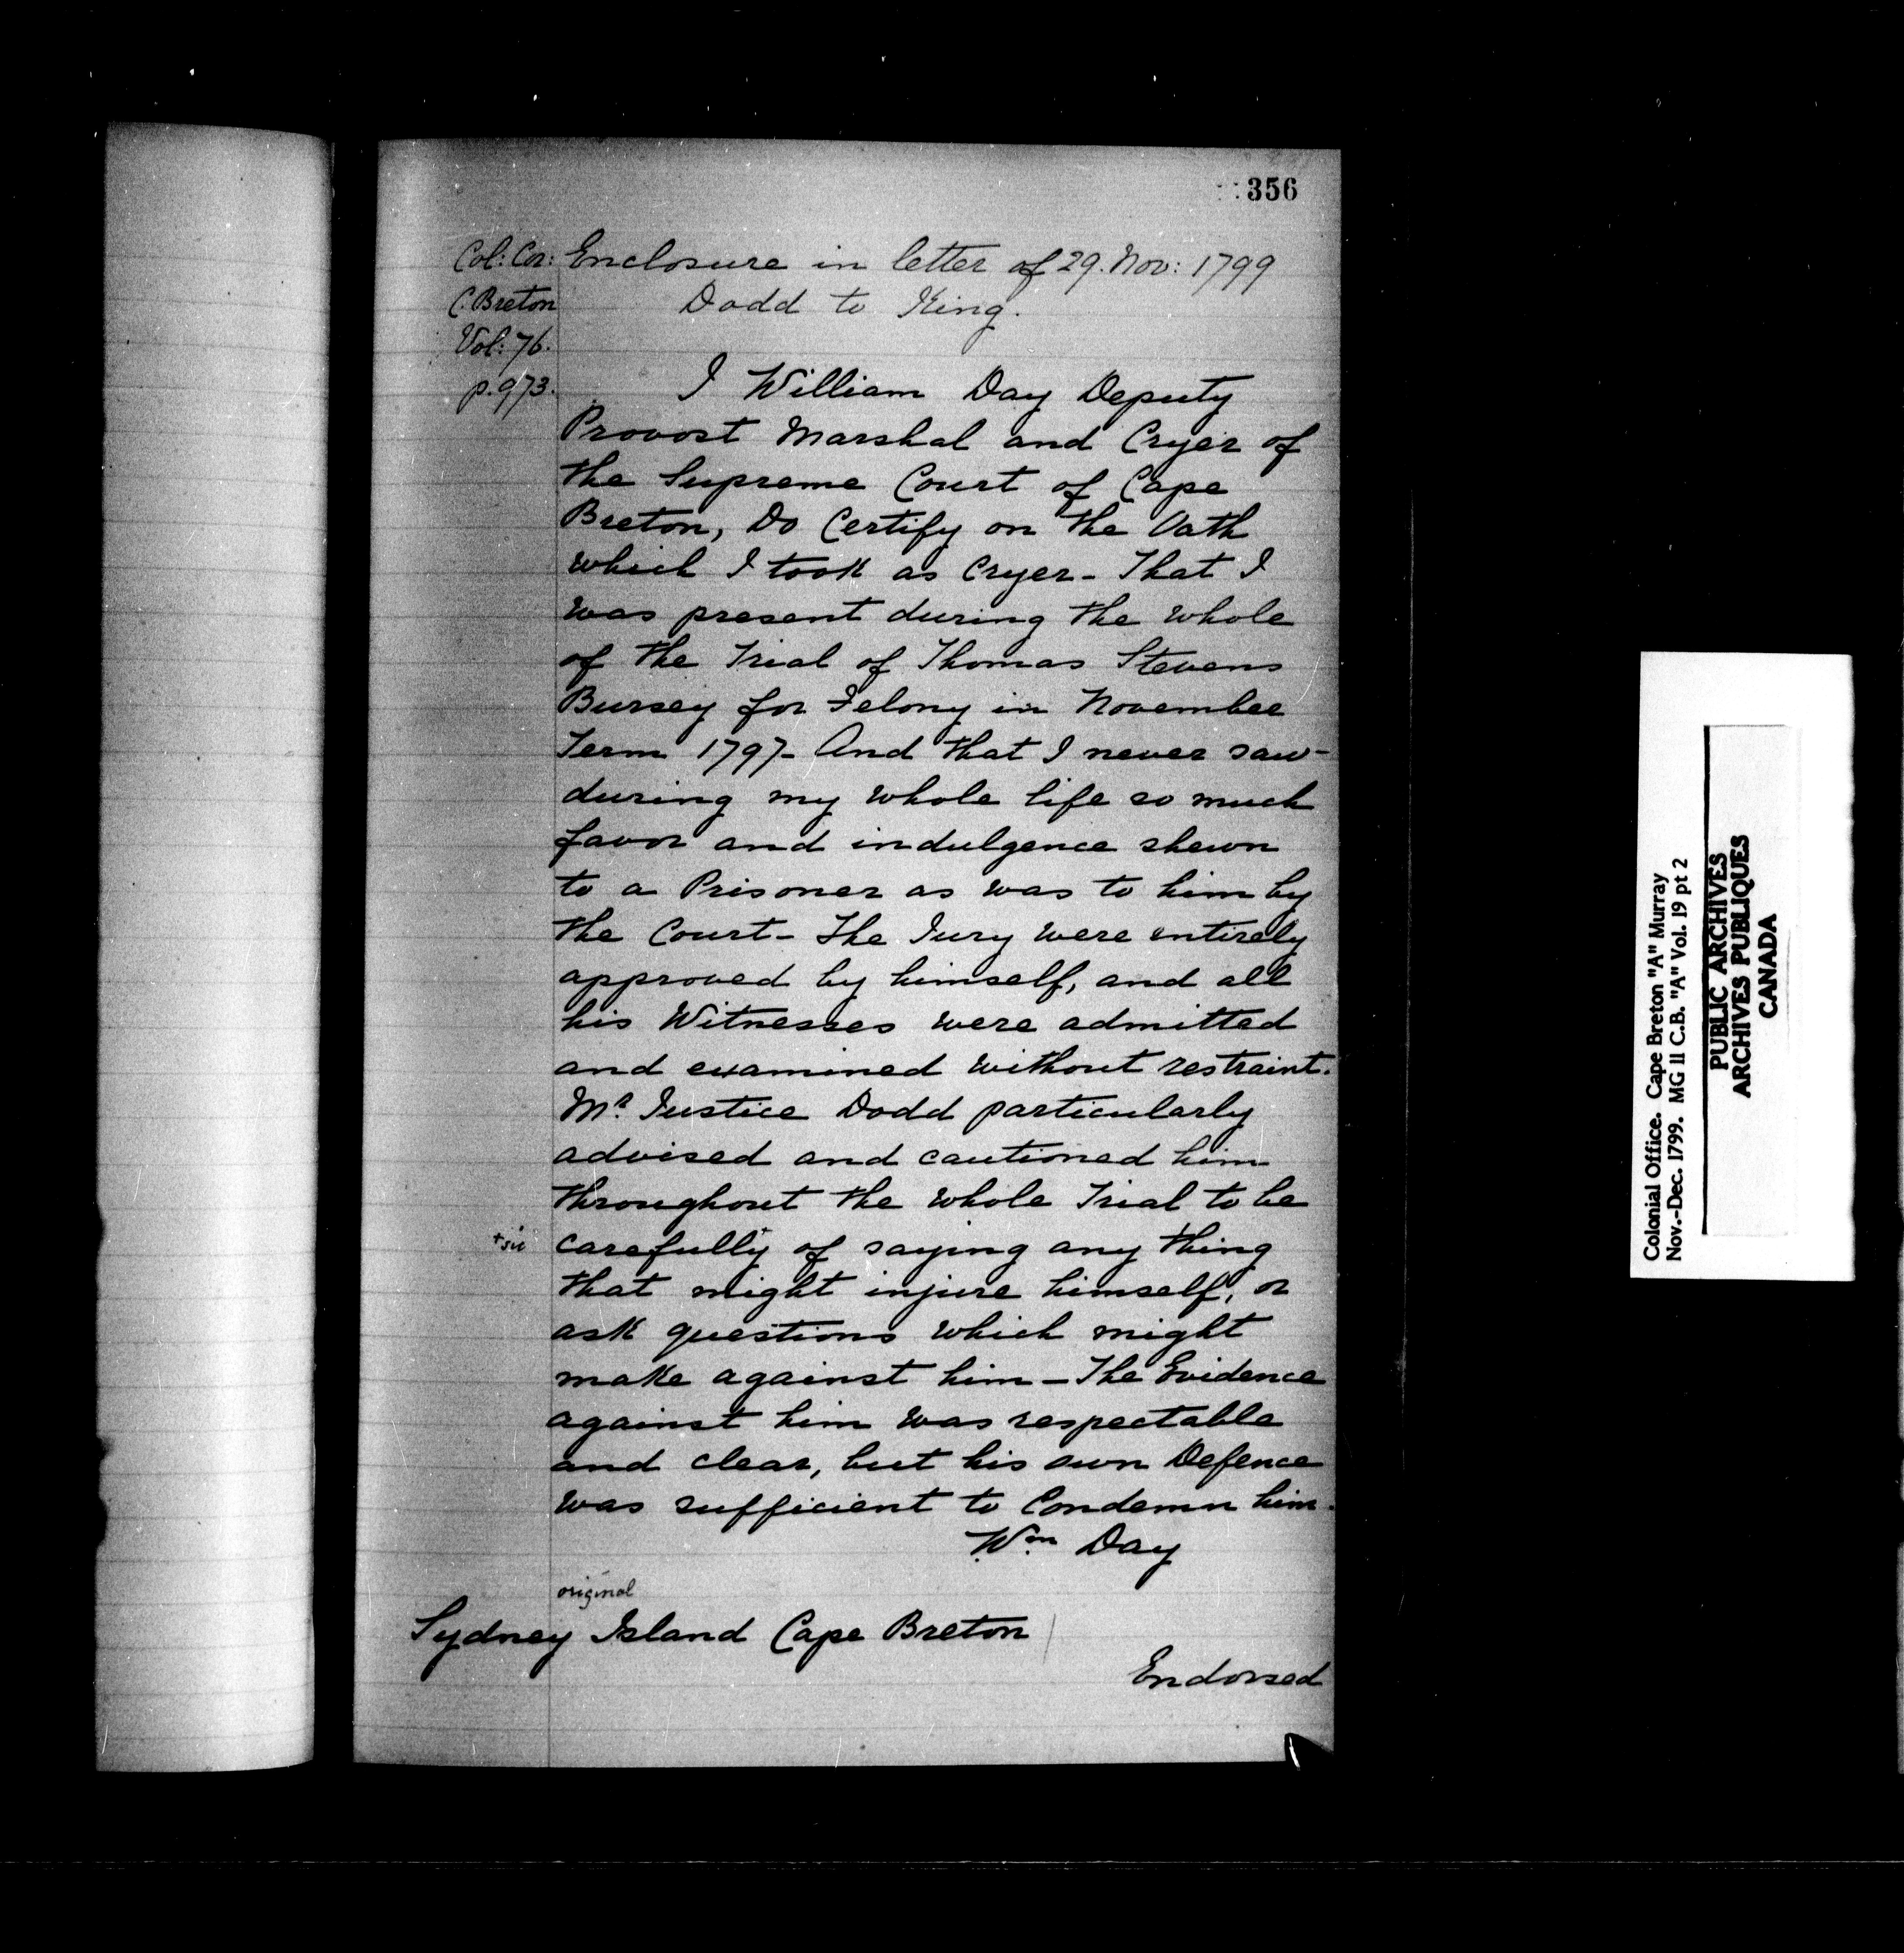 356
Col: Cor: Enclosure in letter of 29. Nov: 1799
C. Breton Dodd to King.
Vol: 76.
p. 973.
I William Day Deputy
Provost Marshal and Cryer of
the Supreme Court of Cape
Breton, Do Certify on the Oath
which I took as Cryer - That I
was present during the whole
of the Trial of Thomas Stevens
Bursey for Felony in November
Term 1797 - And that I never saw -
during my whole life so much
favor and indulgence shewn
to a Prisoner as was to him by
the Court - The Jury were entirely
approved by himself, and all
his Witnesses were admitted
and examined without restraint.
Mr. Justice Dodd particularly
advised and cautioned him
throughout the whole Trial to be
+sic carefully+ of saying any thing
that might injure himself, or
ask questions which might
make against him - The Evidence
against him was respectable
and clear, but his own Defence
was sufficient to Condemn him.
Wm Day
original
Sydney Island Cape Breton
Endorsed
Colonial Office. Cape Breton "A" Murray
Nov.-Dec. 1799. MG 11 C.B. "A" Vol. 19 pt 2
PUBLIC ARCHIVES
ARCHIVES PUBLIQUES
CANADA